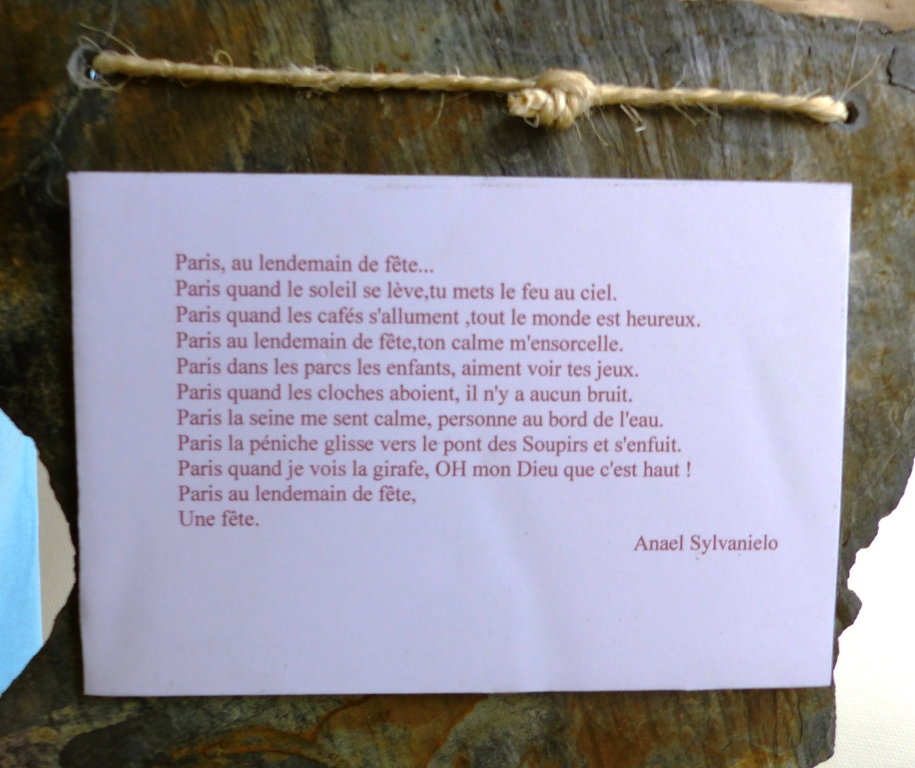 Paris, au lendemain de fête...
Paris quand le soleil se lève,tu mets le feu au ciel.
Paris quand les cafés s'allument ,tout le monde est heureux.
Paris au lendemain de fête,ton calme m'ensorcelle.
Paris dans les parcs les enfants, aiment voir tes jeux.
Paris quand les cloches aboient, il n'y a aucun bruit.
Paris la seine me sent calme, personne au bord de l'eau.
Paris la péniche glisse vers le pont des Soupirs et s'enfuit.
Paris quand je vois la girafe, OH mon Dieu que c'est haut !
Paris au lendemain de fête,
Une fête.
Anael Sylvanielo